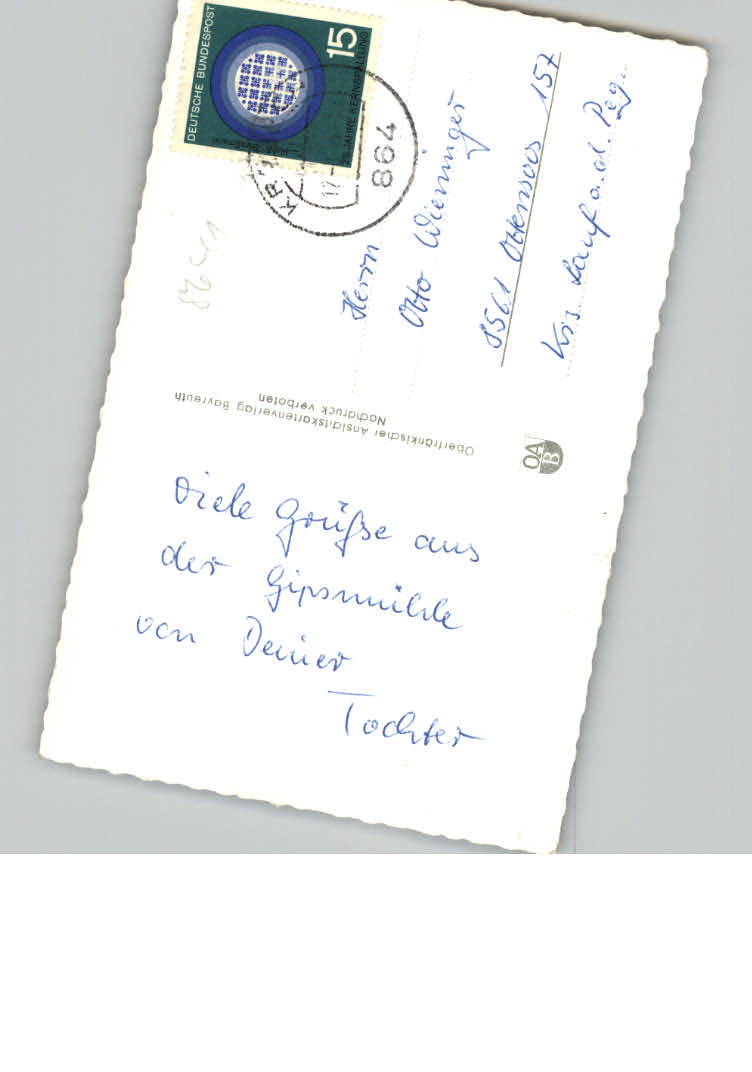 Viele Grüße aus
der Gipsmühle
von Deiner
Tochter
Herrn
Otto Wieninger
8561 Ottensoos 157
Krs. Lauf a. d. Peg.
DEUTSCHE BUNDESPOST
15
JAHRE KERNSPALTUNG
864
86411
Oberfränkischer Ansichtskartenverlag Bayreuth
Nachdruck verboten
OA
B